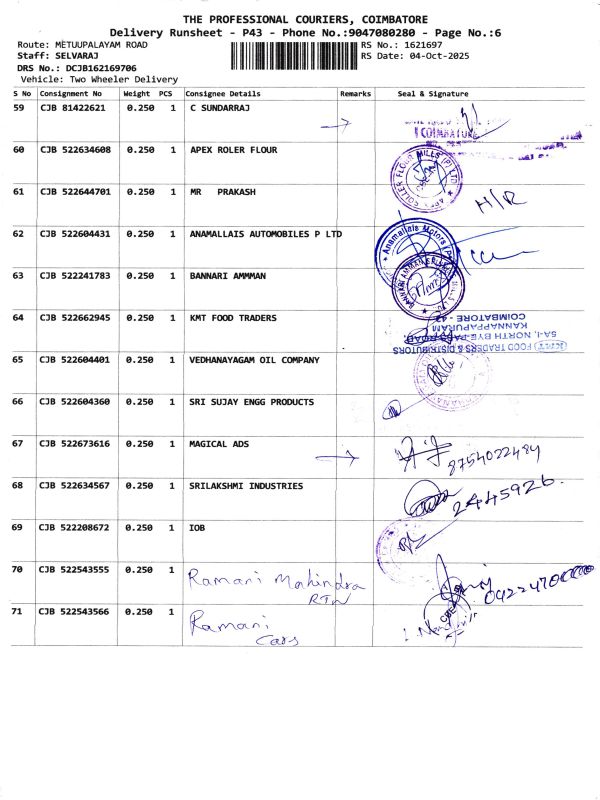 THE PROFESSIONAL COURIERS, COIMBATORE
Delivery Runsheet - P43 - Phone No.:9047080280 - Page No.:6
Route: METUUPALAYAM ROAD RS No.: 1621697
Staff: SELVARAJ RS Date: 04-Oct-2025
DRS No.: DCJB162169706
Vehicle: Two Wheeler Delivery
S No Consignment No Weight PCS Consignee Details Remarks Seal & Signature
59 CJB 81422621 0.250 1 C SUNDARRAJ
COIMBATURE
60 CJB 522634608 0.250 1 APEX ROLER FLOUR
61 CJB 522644701 0.250 1 MR PRAKASH H/R
62 CJB 522604431 0.250 1 ANAMALLAIS AUTOMOBILES P LTD Anamallais Motors
63 CJB 522241783 0.250 1 BANNARI AMMMAN
64 CJB 522662945 0.250 1 KMT FOOD TRADERS
KMT FOOD TRADERS & DISTRIBUTORS
5A-I, NORTH BYE-PASS ROAD,
KANNAPPAPURAM
COIMBATORE - 43
65 CJB 522604401 0.250 1 VEDHANAYAGAM OIL COMPANY
66 CJB 522604360 0.250 1 SRI SUJAY ENGG PRODUCTS
67 CJB 522673616 0.250 1 MAGICAL ADS 8754022484
68 CJB 522634567 0.250 1 SRILAKSHMI INDUSTRIES 2445926.
69 CJB 522208672 0.250 1 IOB
70 CJB 522543555 0.250 1 Ramani Mahindra
RTN
71 CJB 522543566 0.250 1 Ramani
Cars